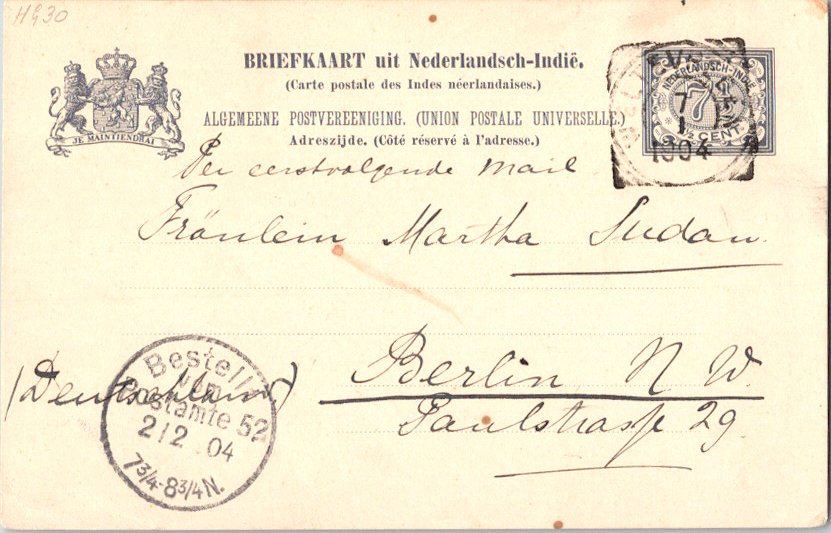 H&G 30
BRIEFKAART uit Nederlandsch-Indië.
(Carte postale des Indes néerlandaises.)
ALGEMEENE POSTVEREENIGING. (UNION POSTALE UNIVERSELLE.)
Adreszijde. (Côté réservé à l'adresse.)
JE MAINTIENDRAI
NEDERLANDSCH-INDIE
7
½ CENT
WELTEVREDEN
7
1
1904
Per eerstvolgende mail
Fräulein Martha Sudau.
Berlin, N W.
(Deutschland)
Paulstrasse 29
Bestellt
vom
Postamte 52
2/2 04
7¾-8¾N.